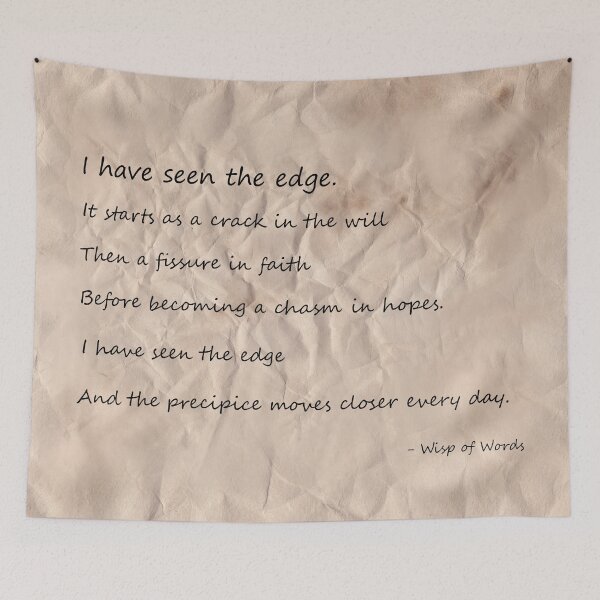 I have seen the edge.
It starts as a crack in the will
Then a fissure in faith
Before becoming a chasm in hopes.
I have seen the edge
And the precipice moves closer every day.
- Wisp of Words